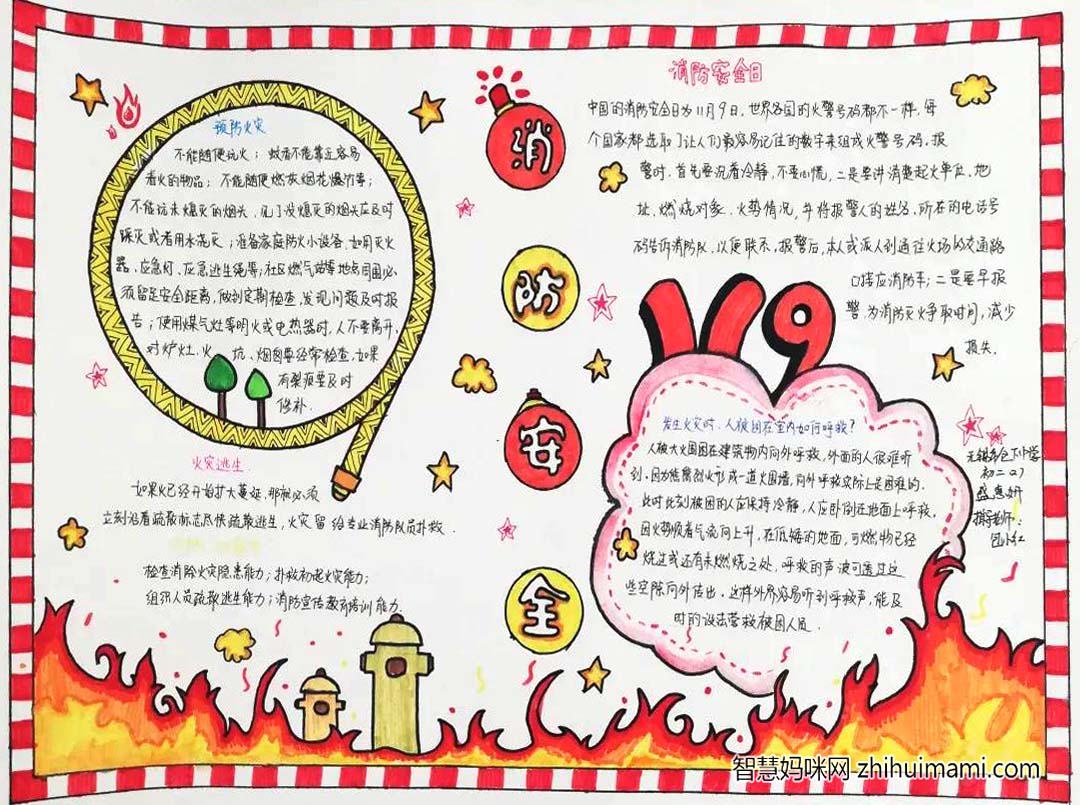 预防火灾
不能随便玩火；蚊香不能靠近容易
着火的物品；不能随便燃放烟花爆竹等；
不能玩未熄灭的烟头，见了没熄灭的烟头应及时
踩灭或者用水浇灭；准备家庭防火小设备，如用灭火
器、应急灯、应急逃生绳等；社区燃气站等地点周围必
须留足安全距离，做到定期检查，发现问题及时报
告；使用煤气灶等明火或电热器时，人不要离开，
对炉灶、火坑、烟囱要经常检查，如果
有裂痕要及时
修补.
火灾逃生
如果火已经开始扩大蔓延，那就必须
立刻沿着疏散标志尽快疏散逃生，火灾留给专业消防队员扑救.
检查消除火灾隐患能力；扑救初起火灾能力；
组织人员疏散逃生能力；消防宣传教育培训能力.
消
防
安
全
消防安全日
中国的消防安全日为11月9日，世界各国的火警号码都不一样，每
个国家都选取了让人们最容易记住的数字来组成火警号码，报
警时，首先要沉着冷静，不要心慌，二是要讲清楚起火单位、地
址、燃烧对象、火势情况，并将报警人的姓名、所在的电话号
码告诉消防队，以便联系，报警后，本人或派人到通往火场的交通路
口接应消防车；二是要早报
警，为消防灭火争取时间，减少
损失.
119
发生火灾时，人被困在室内如何呼救？
人被大火围困在建筑物内向外呼救，外面的人很难听
到，因为熊熊烈火形成一道火围墙，向外呼救实际上是困难的.
此时此刻被困的人应保持冷静，人应卧倒在地面上呼救，
因火势顺着气流向上升，在低矮的地面，可燃物已经
烧过或还有未燃烧之处，呼救的声波可透过这
些空隙向外传出，这样外界容易听到呼救声，能及
时的设法营救被困人员.
无锡市仓下中学
初二（2）
盛
妍
指导老师：
包小红
智慧妈咪网 zhihuimami.com